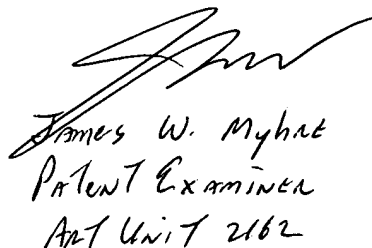 James W. Myhre
Patent Examiner
Art Unit 2162